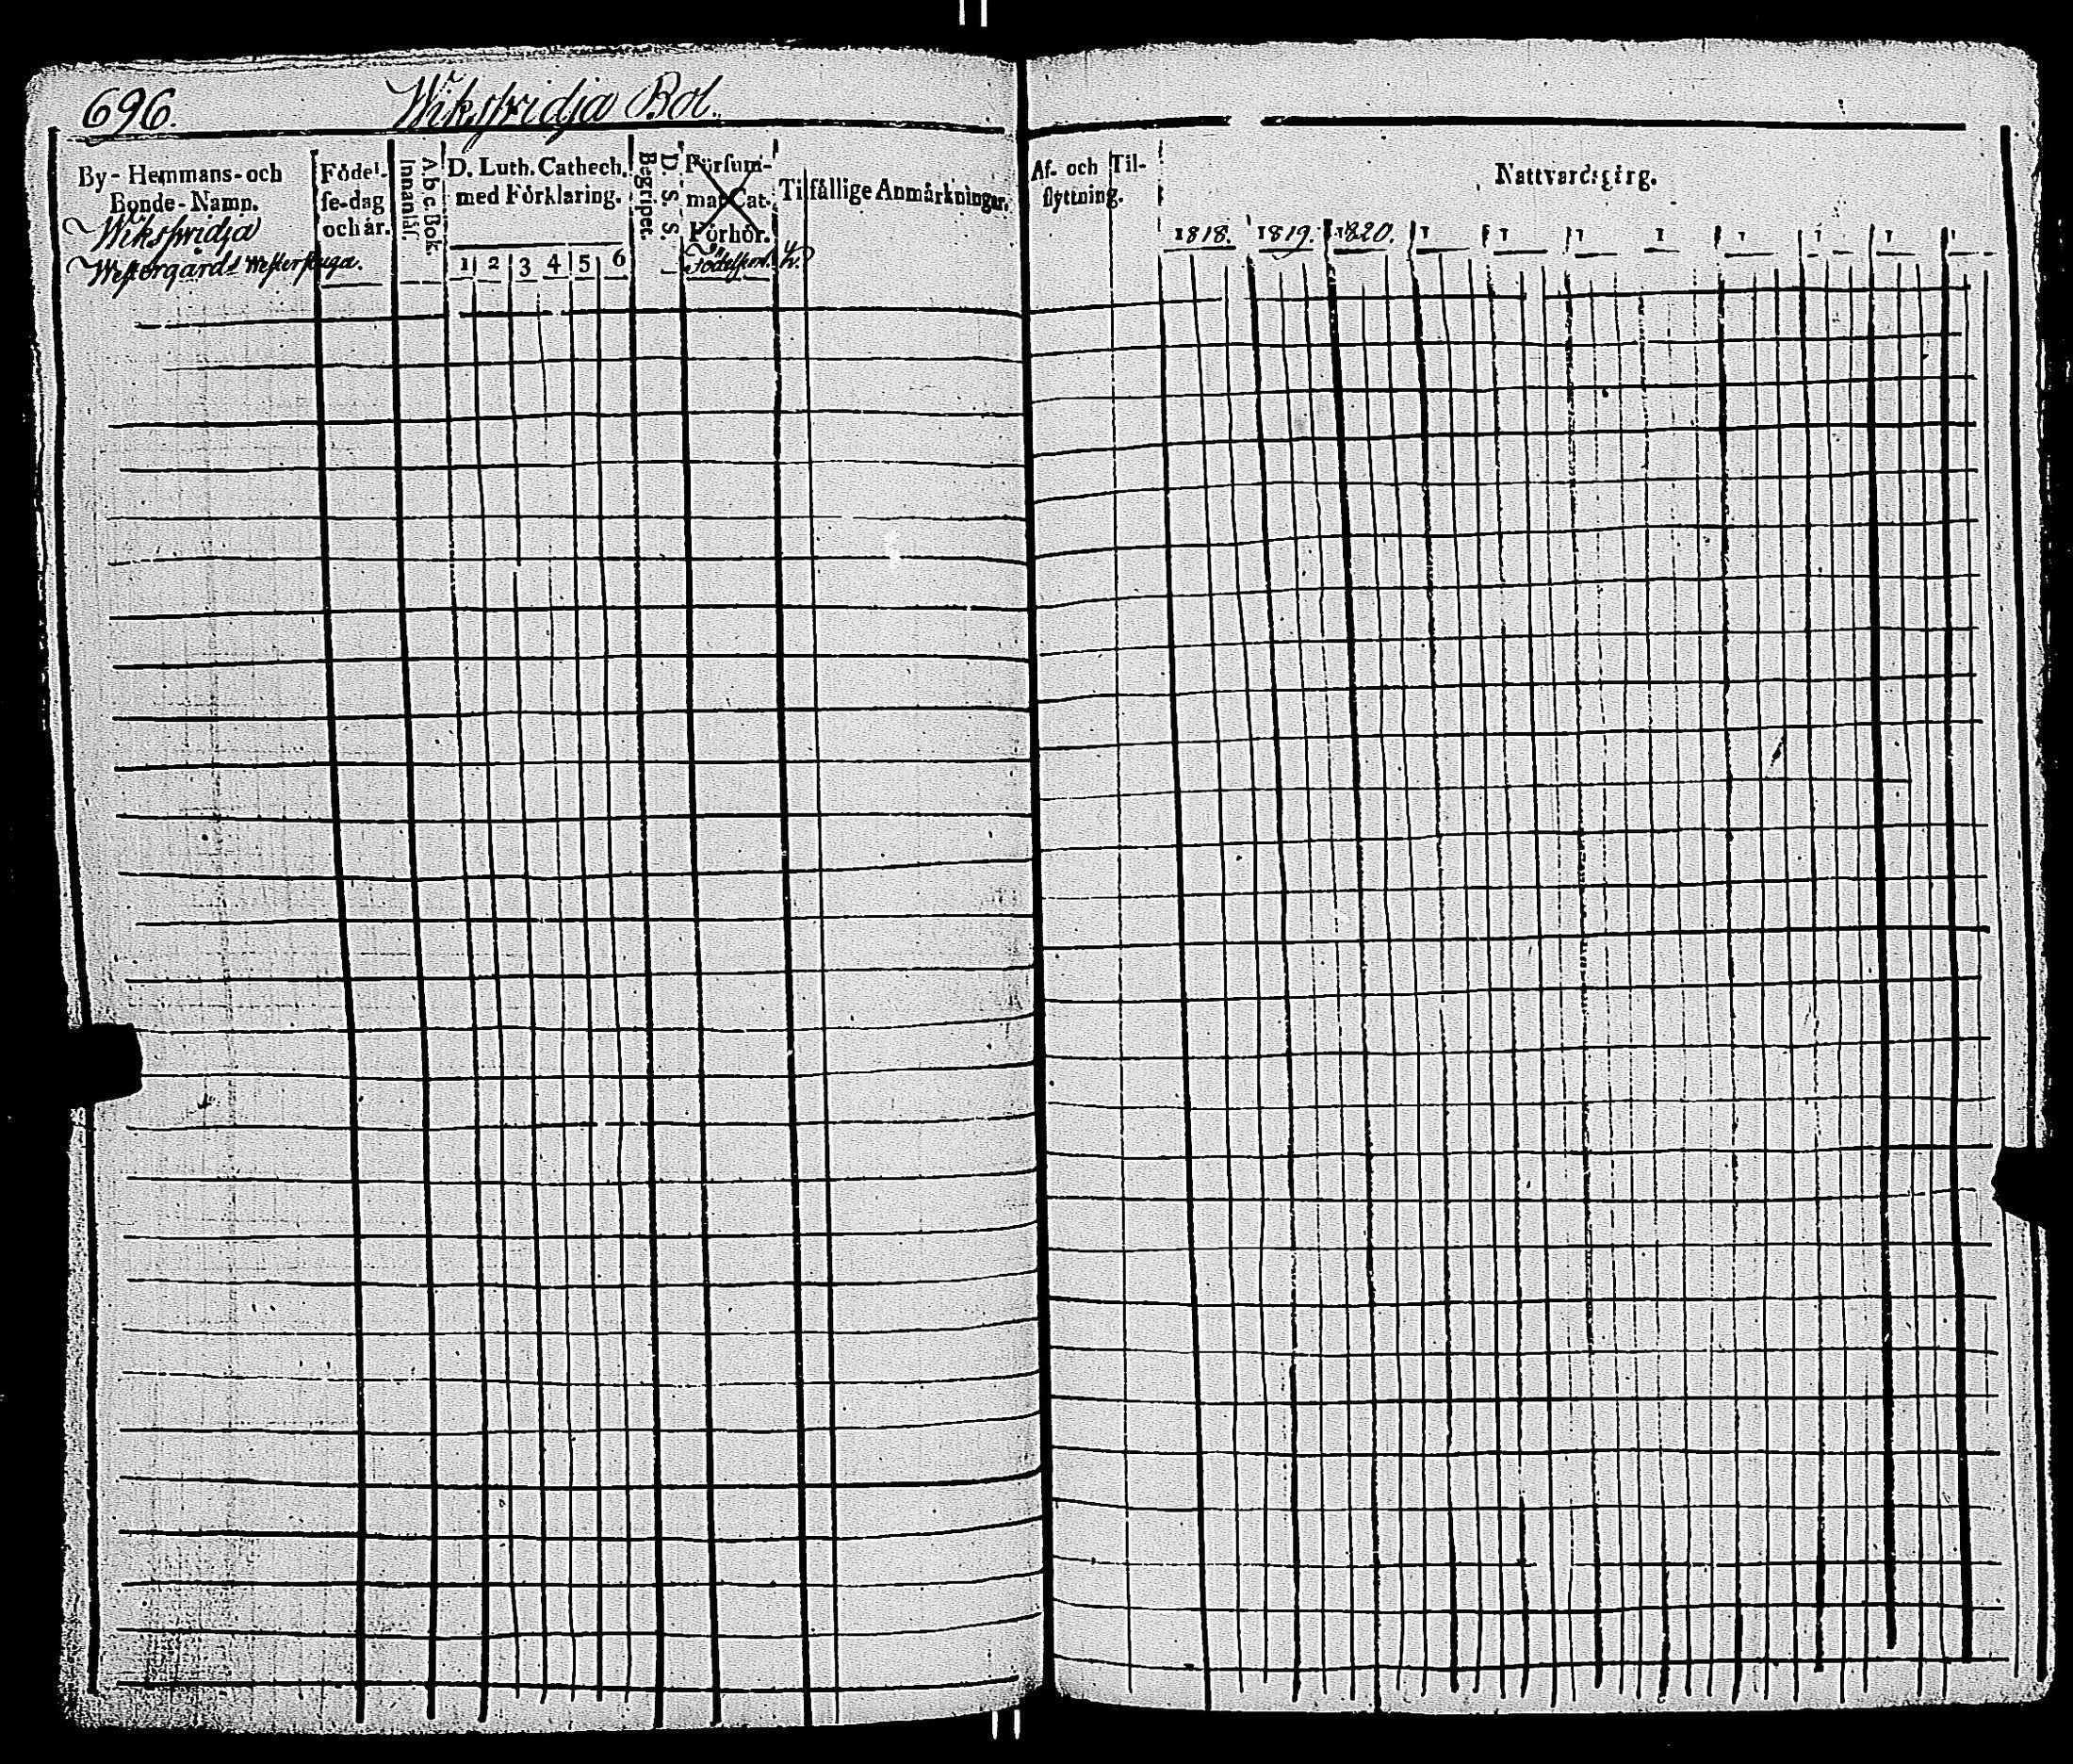 696. Wiksfridja Bol.
By- Hemmans- och
Bonde- Namn.
Wiksfridja
Westergårds Westerstuga.
Födel-
se-dag
och år.
A.b.c. Bok.
Innanläs.
D. Luth. Cathech.
med Förklaring.
1 2 3 4 5 6
D. S. S.
Begripet.
Försum-
mat Cat.
Förhör.
Tilfällige Anmärkningar.
Af- och Til-
flyttning.
Nattvardsgång.
1818. 1819. 1820. 1 1 1 1 1 1 1 1